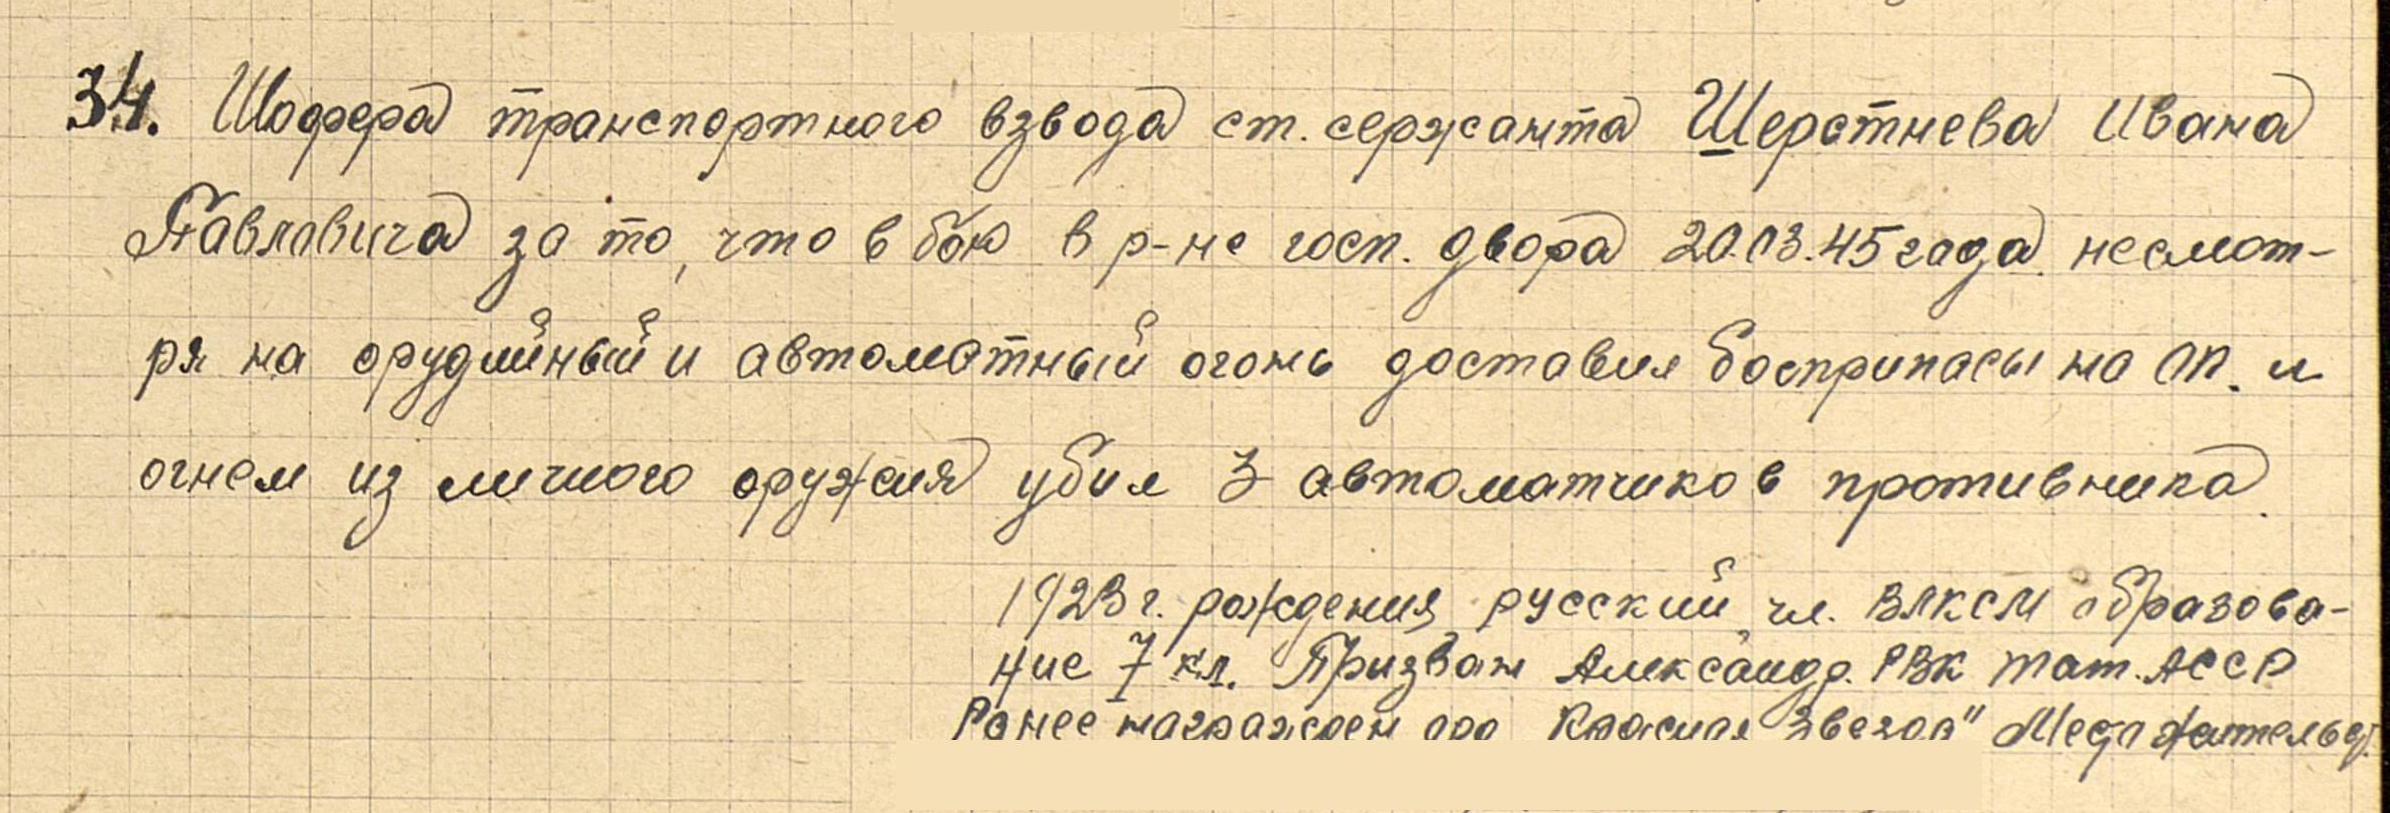 34. Шофера транспортного взвода ст. сержанта Шерстнева Ивана
Павловича за то, что в бою в р-не госп. двора 20.03.45 года несмот-
ря на орудийный и автоматный огонь доставил боеприпасы на ОП. и
огнем из личного оружия убил 3 автоматчиков противника.
1923 г. рождения, русский, чл. ВЛКСМ образова-
ние 7 кл. Призван Александр. РВК Тат. АССР
Ранее награжден орд Красная Звезда"